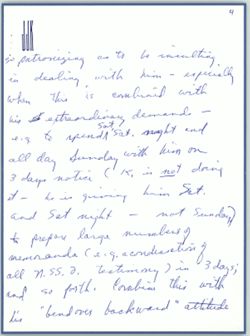 4
JJK
so patronizing as to be insulting
in dealing with him - especially
when this is combined with
his extraordinary demands -
e.g. to spend Sat. night and
Sat.
all day Sunday with him on
3 days notice (K. is not doing
it - he is giving him Sat.
and Sat night - not Sunday),
to prepare large numbers of
memoranda (e.g. a condensation of
all N.SS.O. testimony) in 3 days,
and so forth. Combine this with
his "bend over backward" attitude